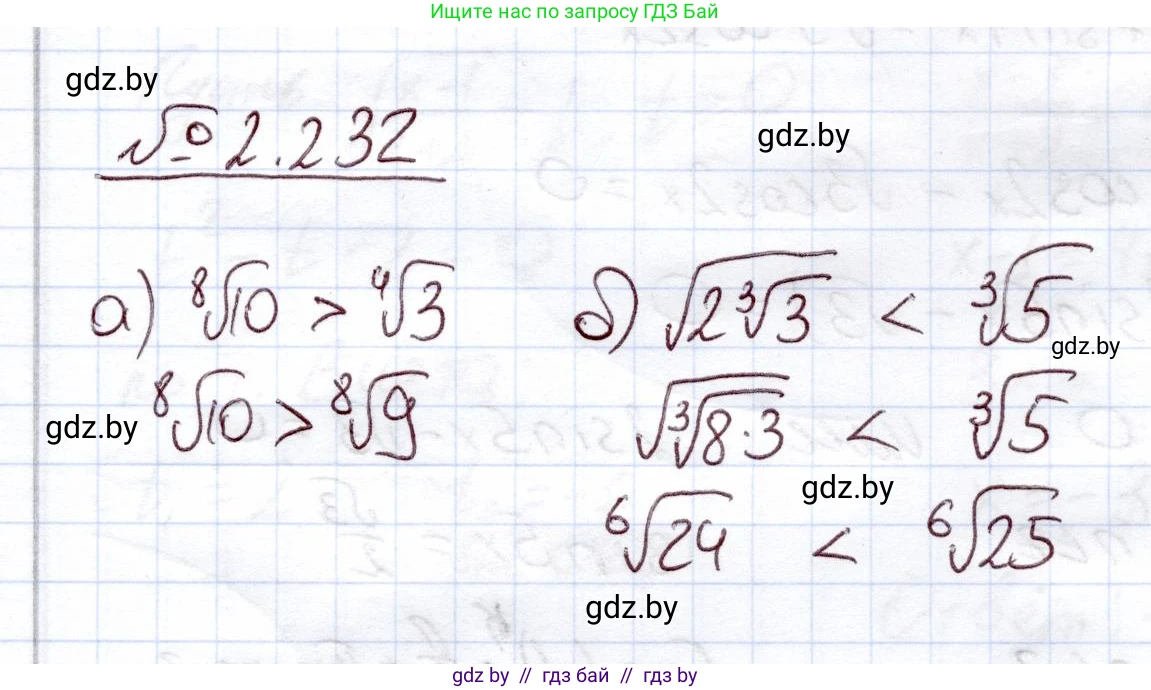 Ищите нас по запросу ГДЗ Бай
gdz.by
№ 2.232
gdz.by
а) ⁸√10 > ⁴√3
⁸√10 > ⁸√9
gdz.by
б) √(2∛3) < ∛5
gdz.by
√(∛(8·3)) < ∛5
gdz.by
⁶√24 < ⁶√25
gdz.by
gdz by // гдз бай // гдз by